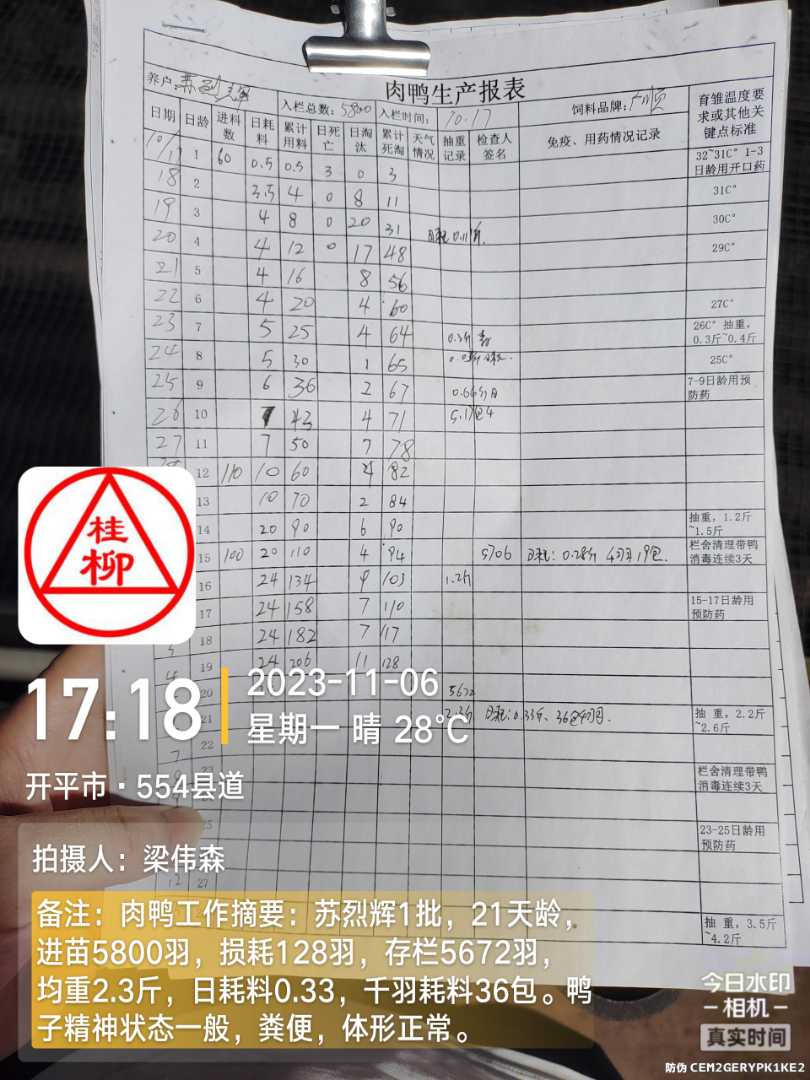 肉鸭生产报表
养户:
入栏总数: 5800 入栏时间: 10.17 饲料品牌:
日期 日龄 进料数 日耗料 累计用料 日死亡 日淘汰 累计死淘 天气情况 抽重记录 检查人签名 免疫、用药情况记录 育雏温度要求或其他关键点标准
10/17 1 60 0.5 0.5 3 0 3 32~31C° 1-3日龄用开口药
18 2 3.5 4 0 8 11 31C°
19 3 4 8 0 20 31 30C°
20 4 4 12 0 17 48 29C°
21 5 4 16 8 56
22 6 4 20 4 60 27C°
23 7 5 25 4 64 26C° 抽重,0.3斤~0.4斤
24 8 5 30 1 65 25C°
25 9 6 36 2 67 7-9日龄用预防药
26 10 7 43 4 71
27 11 7 50 7 78
12 110 10 60 4 82
13 10 70 2 84
14 20 90 6 90 抽重,1.2斤~1.5斤
15 100 20 110 4 94 5706 日耗:0.28斤 栏舍清理带鸭消毒连续3天
16 24 134 9 103 1.2斤
17 24 158 7 110 15-17日龄用预防药
18 24 182 7 117
19 24 206 11 128
20 5672
21 2.3斤 日耗:0.33斤、 抽重,2.2斤~2.6斤
22
栏舍清理带鸭消毒连续3天
23-25日龄用预防药
25
12 27
抽重,3.5斤~4.2斤
桂柳
17:18
2023-11-06
星期一 晴 28℃
开平市·554县道
拍摄人:梁伟森
备注:肉鸭工作摘要:苏烈辉1批,21天龄,
进苗5800羽,损耗128羽,存栏5672羽,
均重2.3斤,日耗料0.33,千羽耗料36包。鸭
子精神状态一般,粪便,体形正常。
今日水印
相机
真实时间
防伪 CEM2GERYPK1KE2